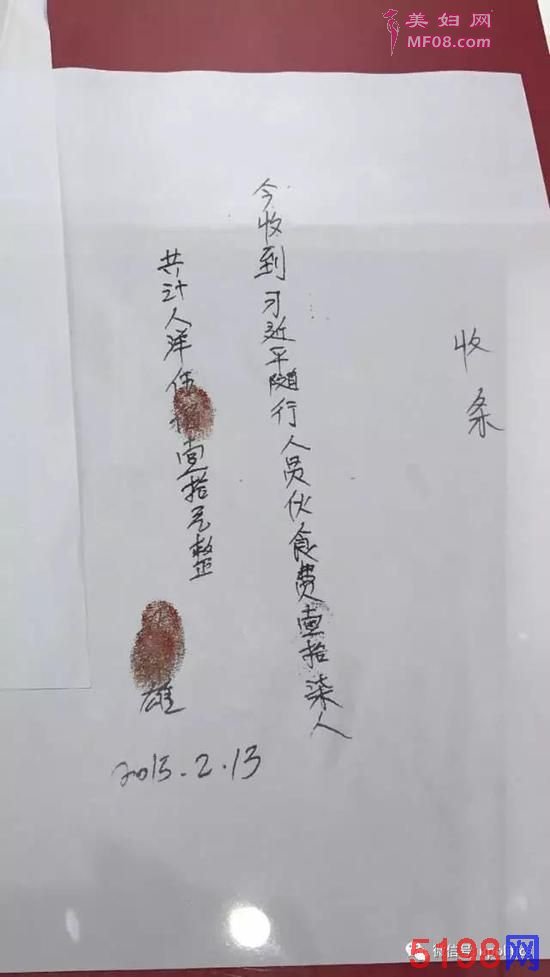 美妇网
MF08.com
收条
今收到习近平随行人员伙食费壹拾柒人
共计人洋伍壹拾元整
雄
2015.2.13
微信号
5198网